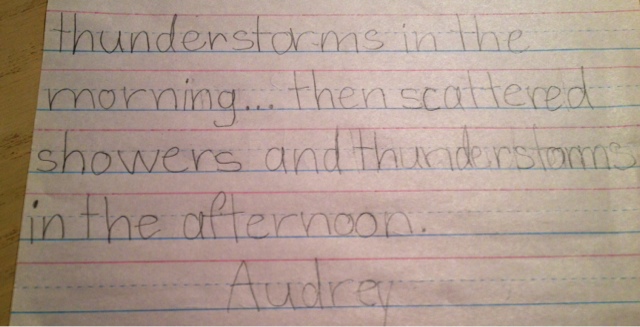 thunderstorms in the
morning... then scattered
showers and thunderstorms
in the afternoon.
Audrey